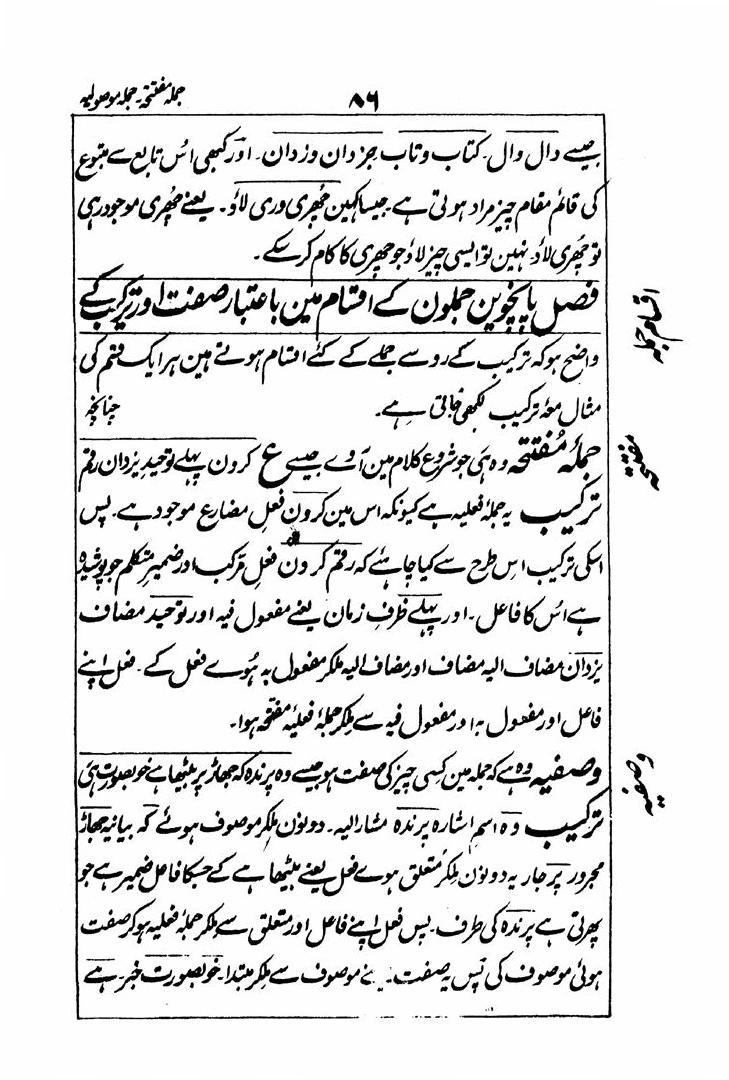 ۸۶
جملہ مفتتحہ۔ جملہ موصولیہ
جیسے دال وال۔ کتاب وتاب جزدان وزدان۔ اور کبھی اُس تابع سے متبوع
کی قائم مقام چیز مراد ہوتی ہے۔ جیسا کہین چھری وری لاؤ۔ یعنے چھری موجود رہی
تو چھری لاؤ نہین تو ایسی چیز لاؤ جو چھری کا کام کر سکے۔
فصل پانچوین جملون کے اقسام مین باعتبار صفت اور ترکیب کے
اقسام جملہ
واضح ہو کہ ترکیب کے رو سے جملے کے کئے اقسام ہوتے ہین ہر ایک قسم کی
مثال معہ ترکیب لکھی جاتی ہے۔ چنانچہ
جملۂ مُفتتحہ وہ ہی جو شروع کلام مین آوے جیسے ع کرون پہلے توحید یزدان رقم
مفتتحہ
ترکیب یہ جملۂ فعلیہ ہے کیونکہ اس مین کرون فعل مضارع موجود ہے۔ پس
اسکی ترکیب اس طرح سے کیا چاہئے کہ رقم کرون فعل مرکب اور ضمیر متکلم جو پوشیدہ
ہے اُس کا فاعل۔ اور پہلے ظرف زمان یعنے مفعول فیہ اور توحید مضاف
یزدان مضاف الیہ مضاف اور مضاف الیہ ملکر مفعول بہ ہُوے فعل کے۔ فعل اپنے
فاعل اور مفعول بہ اور مفعول فیہ سے ملکر جملۂ فعلیۂ مفتتحہ ہوا۔
وصفیہ وہ ہے کہ جملہ مین کسی چیز کی صفت ہو جیسے وہ پرندہ کہ جھاڑ پر بیٹھا ہے خوبصورت ہی
وصفیہ
ترکیب وہ اسم اشارہ پرندہ مشار الیہ۔ دونون ملکر موصوف ہوئے کہ بیانیہ جھاڑ
مجرور پر جار یہ دونون ملکر متعلق ہوے فعل یعنے بیٹھا ہے کے جسکا فاعل ضمیر ہے جو
پھرتی ہے پرندہ کی طرف۔ پس فعل اپنے فاعل اور متعلق سے ملکر جملہ فعلیہ ہو کر صفت
ہوئی موصوف کی پس یہ صفت۔ موصوف سے ملکر مبتدا۔ خوبصورت خبر۔ ہے